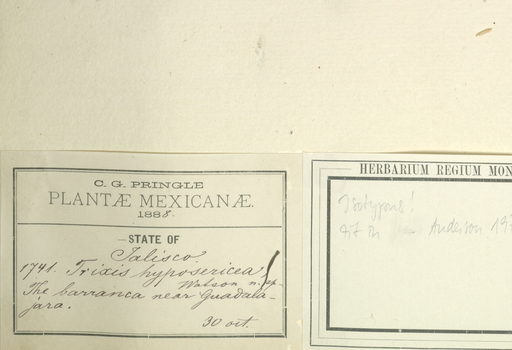 C. G. PRINGLE
PLANTÆ MEXICANÆ.
1888.
STATE OF
Jalisco.
1741. Trixis hyposericea
Watson n. sp.
The barranca near Guadala-
jara.
30 oct.
HERBARIUM REGIUM MON
Isotypus!
Anderson 197